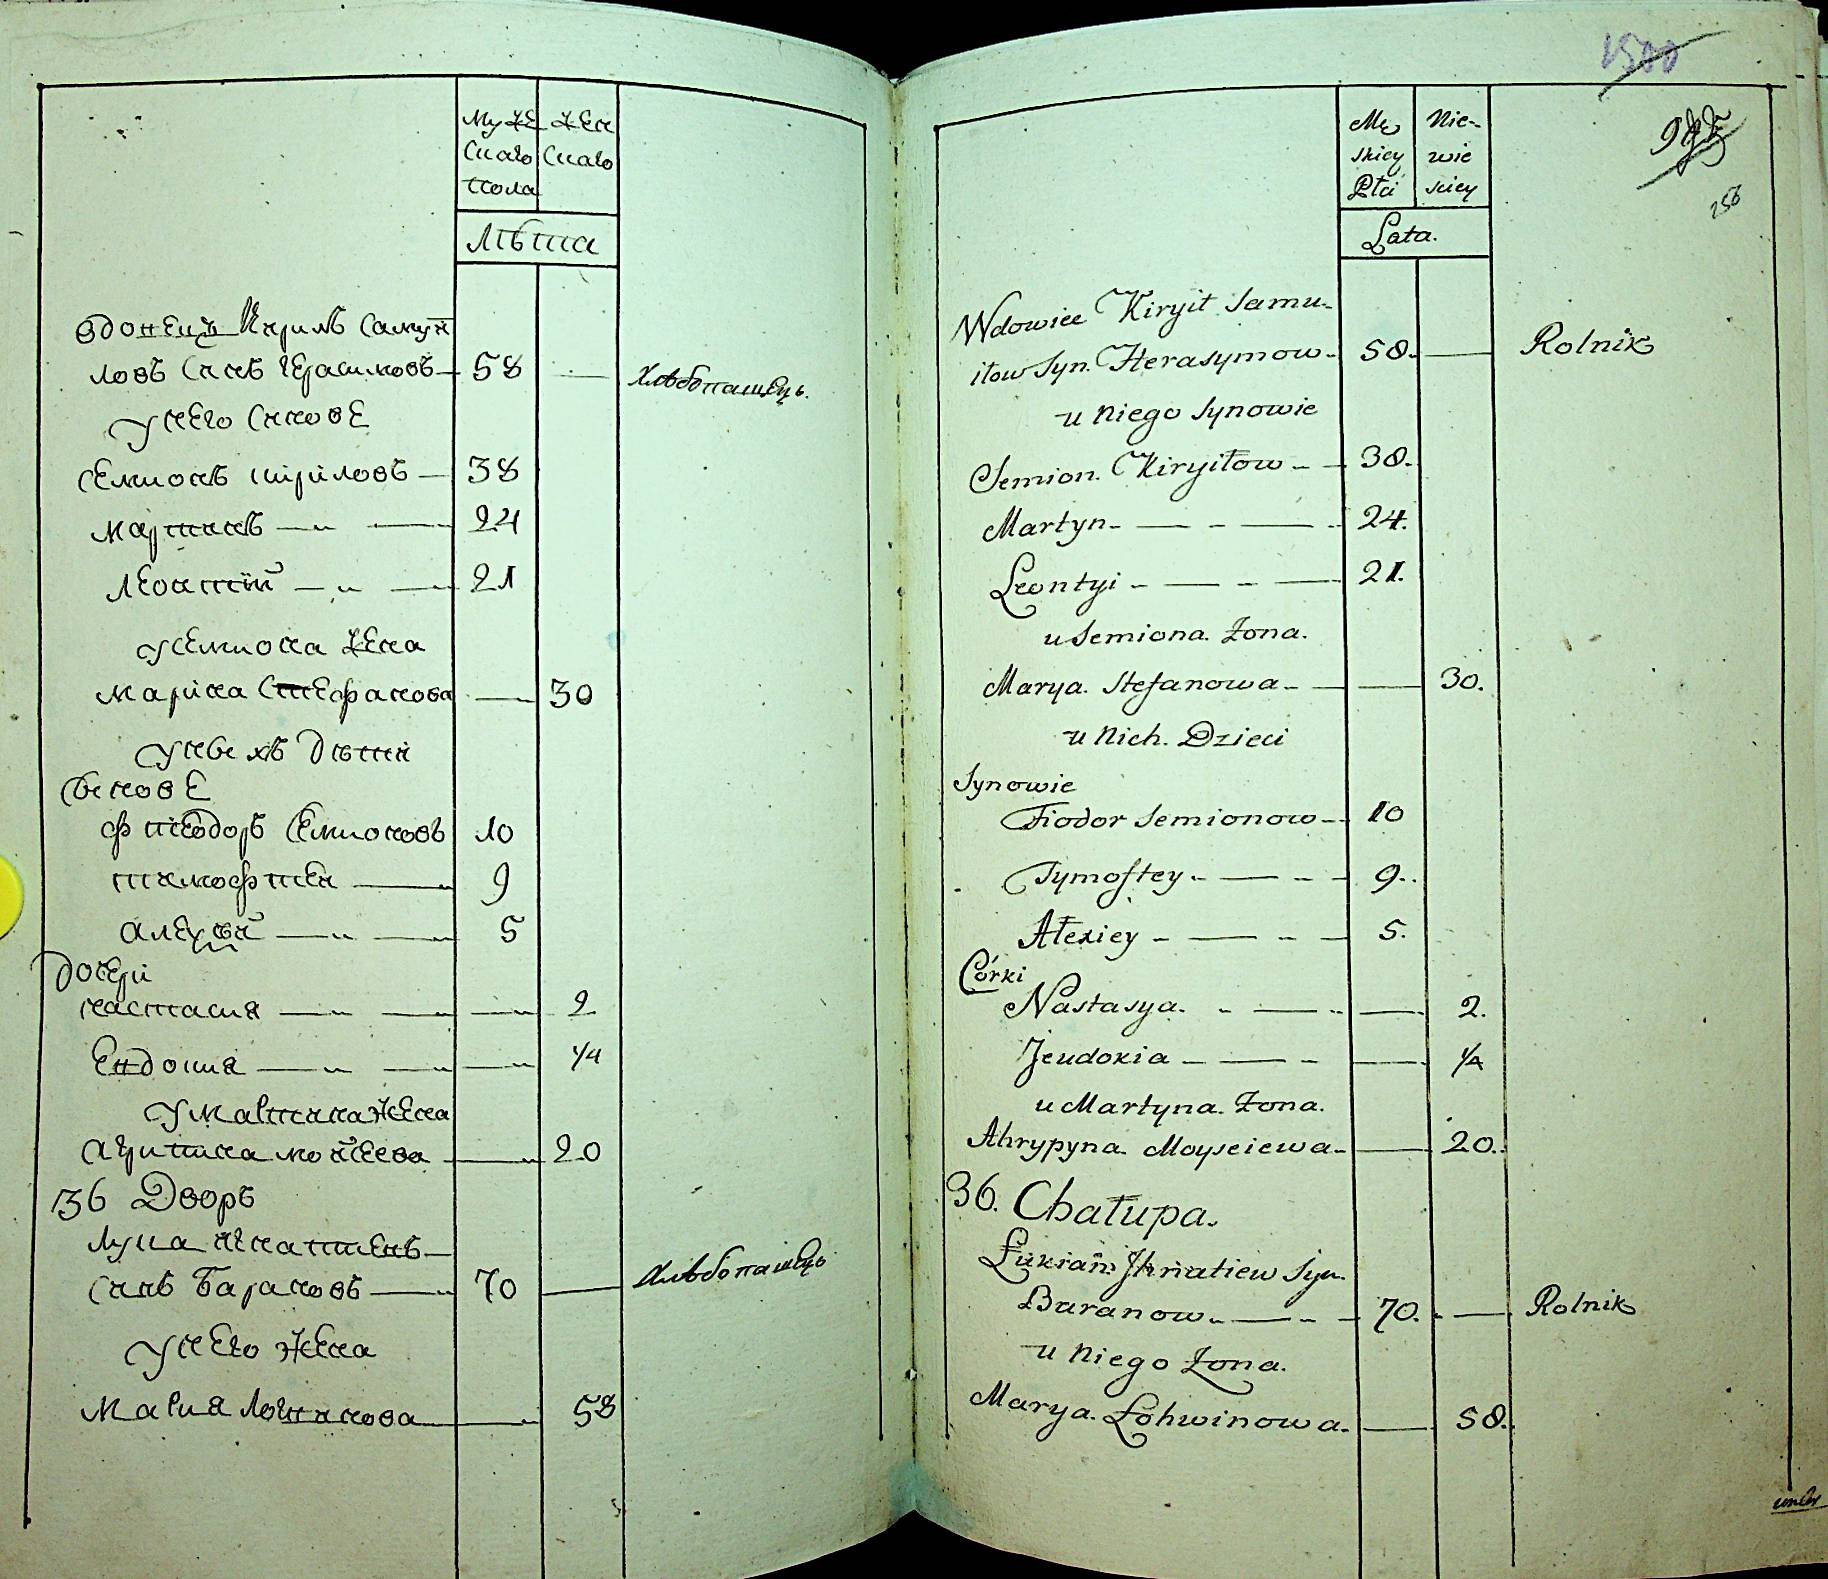 Муже
скаго
пола
Жен
скаго
Лѣта
вдовецъ Кирилъ Самуй
ловъ Сынъ Герасимовъ 58 Хлѣбопашецъ.
у него Сынове
Семионъ Кириловъ 38
Мартынъ 24
Леонтій 21
у Семиона Жена
Марина Стефанова 30
у ных дѣти
Сынове
Фтеодоръ Семионовъ 10
тимофтей 9
Алексѣй 5
дочери
настасия 2
Евдокия 1/4
у Мартина Жена
Агрипина мойсеева 20
36 Дворъ
Лука Игнатиевъ
Сынъ Барановъ 70 Хлѣбопашецъ
у него Жена
Мария Логвинова 58
1500
256
Mę
skiey
Płci
Nie-
wie
sciey
Lata.
Wdowiec Kiryił Samu-
iłow Syn. Herasymow 58. Rolnik
u niego Synowie
Semion. Kiryiłow 38.
Martyn 24.
Leontyi 21.
u Semiona. Żona.
Marya. Stefanowa 30.
u Nich. Dzieci
Synowie
Fiodor Semionow 10
Tymoftey 9.
Ałexiey 5.
Córki
Nastasya. 2.
Jeudokia 1/4
u Martyna. Żona.
Ahrypyna Moyseiewa 20.
36. Chałupa.
Łukian Ihnatiew Syn.
Baranow 70. Rolnik
u Niego Żona.
Marya. Łohwinowa 58.